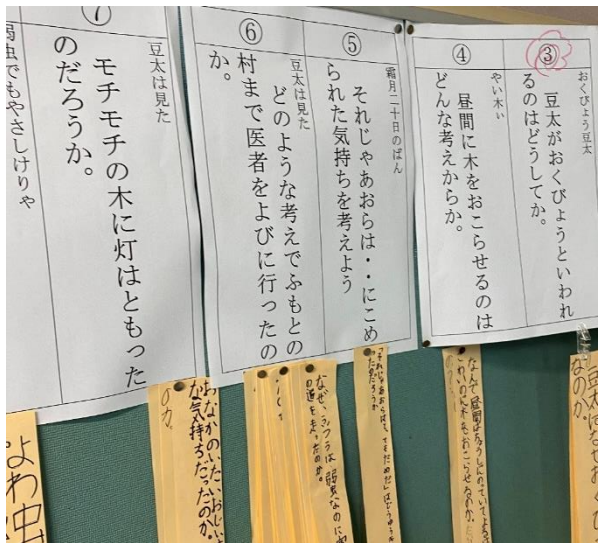 ③
おくびょう豆太
豆太がおくびょうといわれ
るのはどうしてか。
④
やい木ぃ
昼間に木をおこらせるのは
どんな考えからか。
⑤
霜月二十日のばん
それじゃあおらは・・にこめ
られた気持ちを考えよう
⑥
豆太は見た
どのような考えでふもとの
村まで医者をよびに行ったの
か。
⑦
豆太は見た
モチモチの木に灯はともった
のだろうか。
弱虫でもやさしけりゃ
なのか。
なぜ、ふつうは弱虫なのに
の道を走ったのか。
おなかのいたいおじい
な気持ちだったのか。
のか。
よわ虫